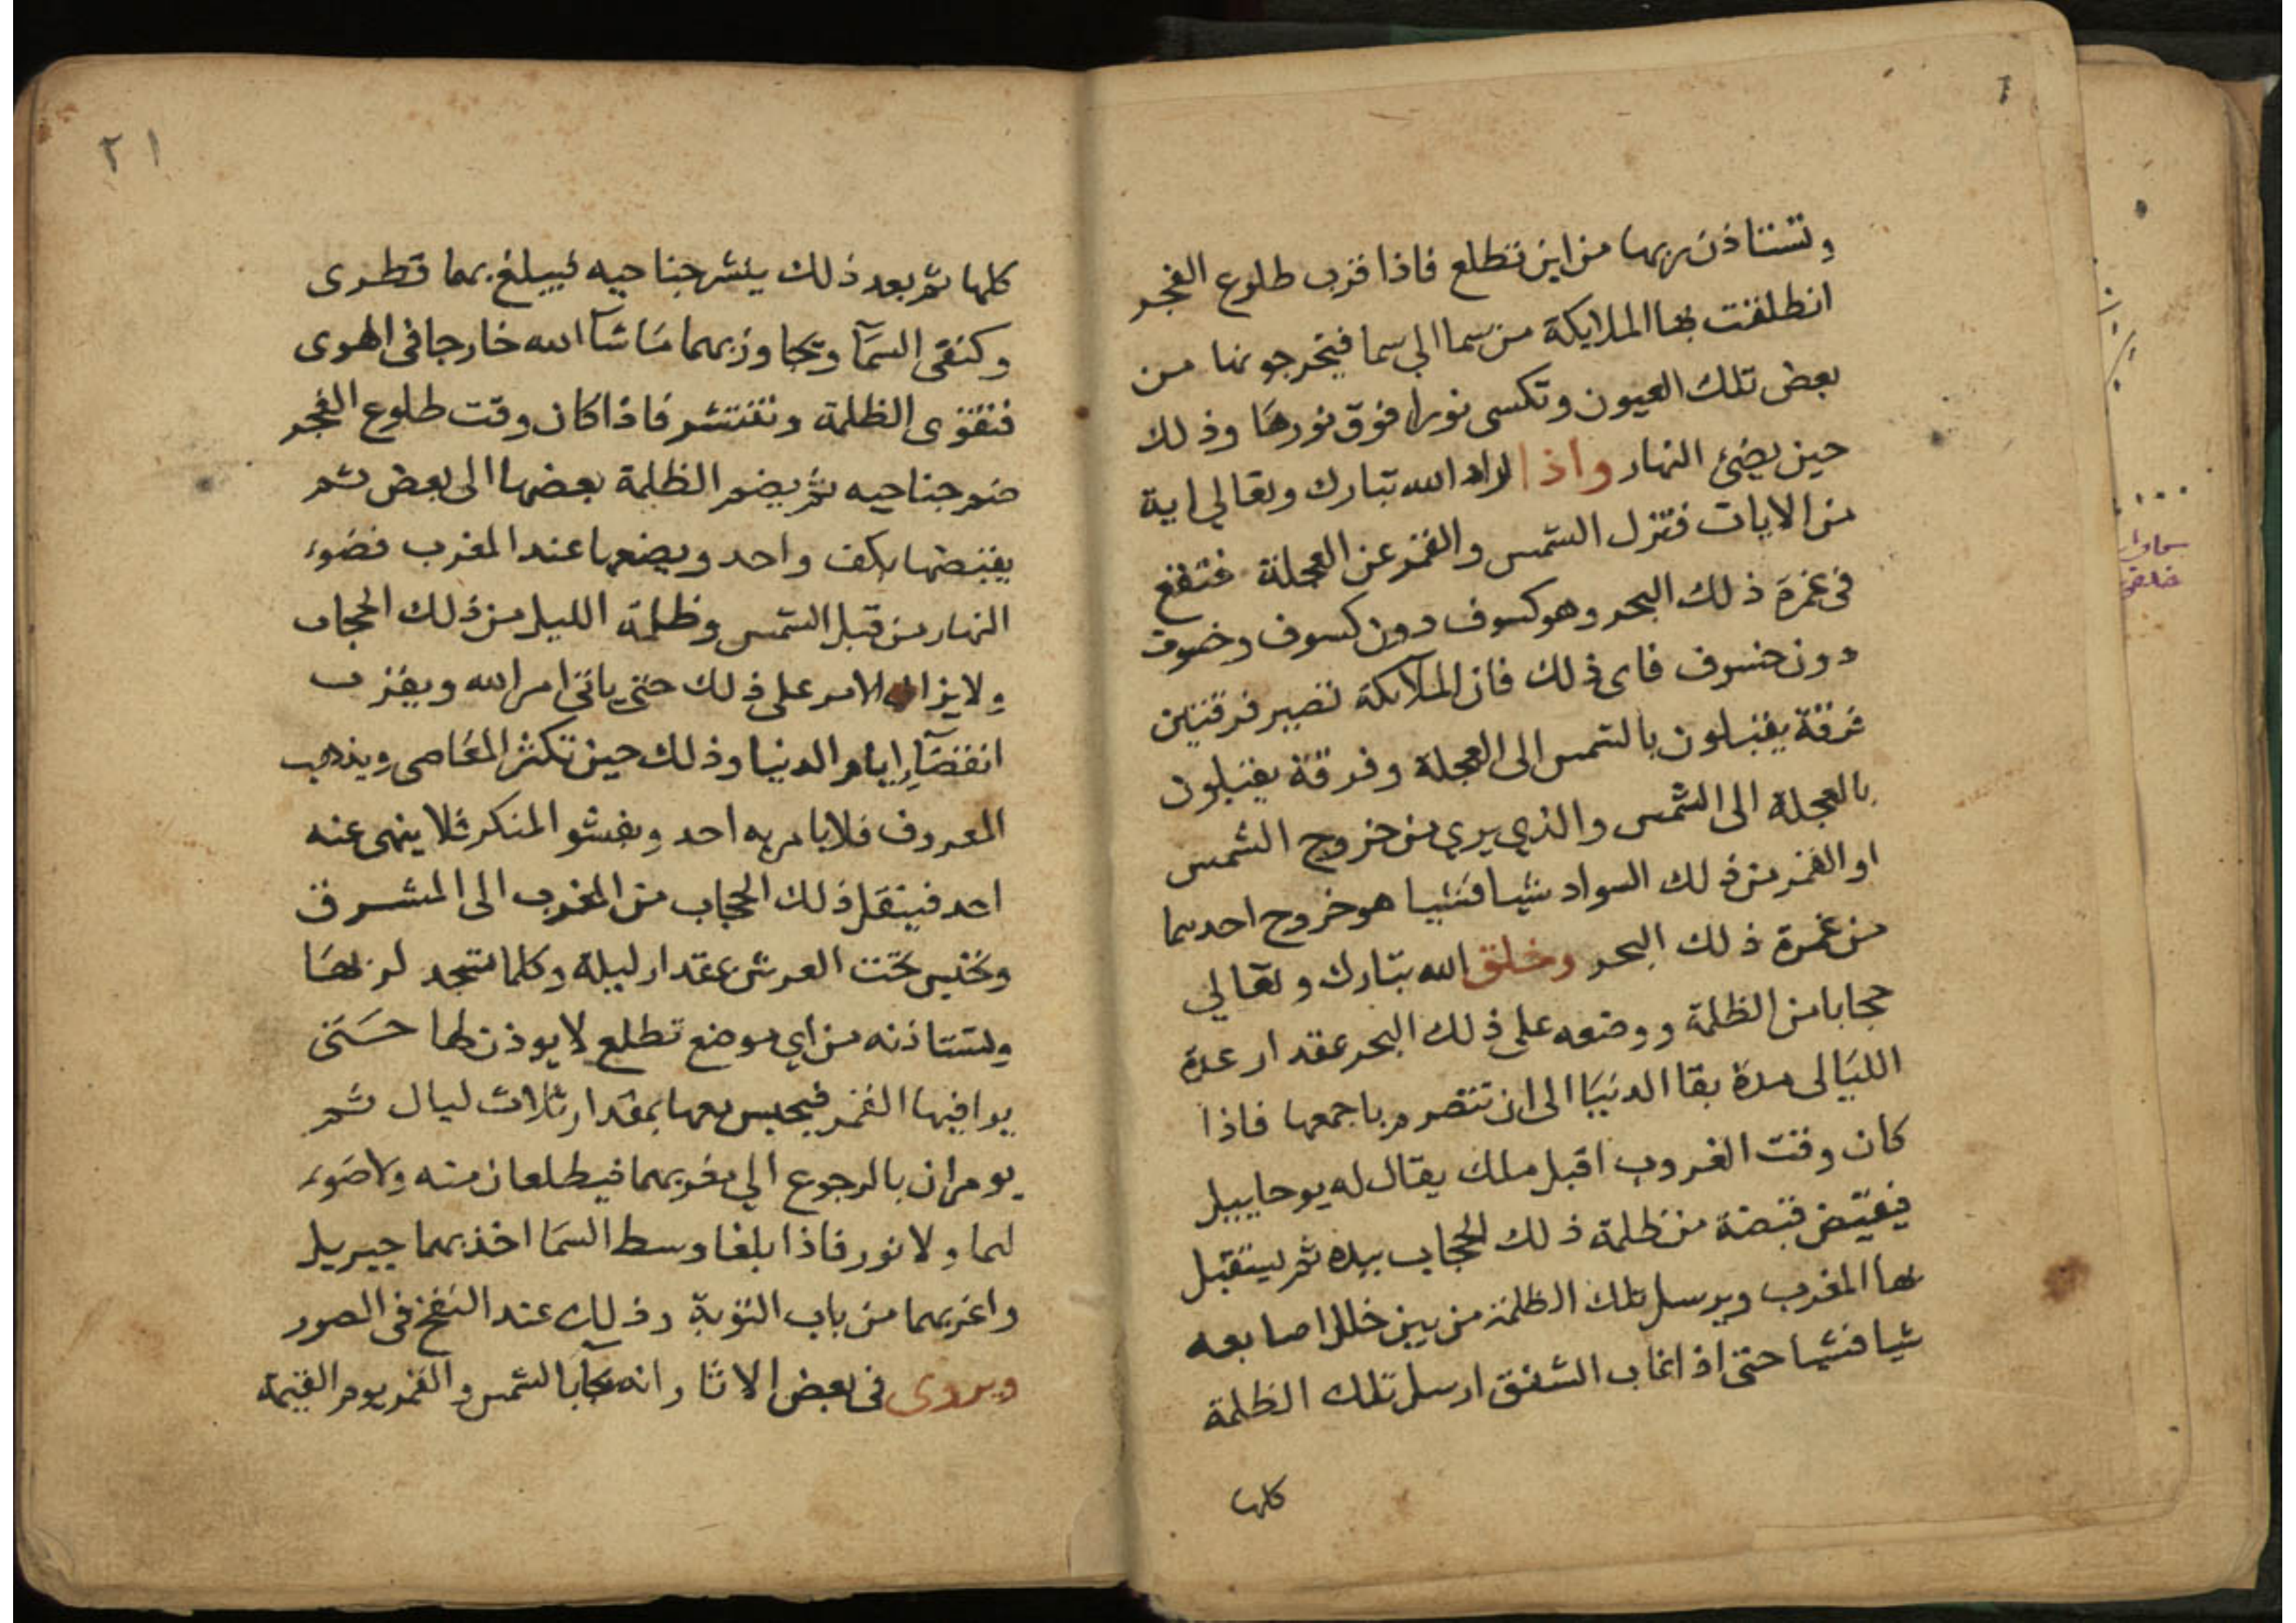 وتستاذن ربها من اين تطلع فاذا قرب طلوع الفجر
انطلقت بها الملايكة من سما الي سما فيخرجونها من
بعض تلك العيون وتكسى نورا فوق نورها وذلك
حين يضئ النهار واذا اراد الله تبارك وتعالي اية
من الايات فتزل الشمس والقمر عن العجلة فتقع
في غمرة ذلك البحر وهو كسوف دون كسوف وخسوف
دون خسوف فاى ذلك فان الملآئكة تصير فرقتين
فرقة يقبلون بالشمس الى العجلة وفرقة يقبلون
بالعجلة الى الشمس والذي يري من خروج الشمس
او القمر من ذلك السواد شيا فشيا هو خروج احدهما
من غمرة ذلك البحر وخلق الله تبارك وتعالي
حجابا من الظلمة ووضعه على ذلك البحر بمقدار عدة
الليالى مدة بقا الدنيا الى ان تتصرم باجمعها فاذا
كان وقت الغروب اقبل ملك يقال له يوحاييل
فيقبض قبضة من ظلمة ذلك الحجاب بيده ثم يستقبل
بها المغرب ويرسل تلك الظلمة من بين خلل اصابعه
شيا فشيا حتى اذا غاب الشفق ارسل تلك الظلمة
كلها
٢١
كلها ثم بعد ذلك ينشر جناحيه فيبلغ بهما قطرى
وكنفى السمآ ويجاوز بهما ما شآ الله خارجا فى الهوى
فتقوى الظلمة وتنتشر فاذا كان وقت طلوع الفجر
ضم جناحيه ثم يضم الظلمة بعضها الى بعض ثم
يقبضها بكف واحد ويضعها عند المغرب فضوء
النهار من قبل الشمس وظلمة الليل من ذلك الحجاب
ولا يزال الامر على ذلك حتى ياتى امر الله ويقرب
انقضآء ايام الدنيا وذلك حين تكثر المعاصى ويذهب
المعروف فلا يامر به احد ويفشو المنكر فلا ينهى عنه
احد فينقل ذلك الحجاب من المغرب الى المشرق
وتحبس تحت العرش بمقدار ليلة وكلما تسجد لربها
وتستاذنه من اي موضع تطلع لا يوذن لها حتى
يوافيها القمر فيحبس معها بمقدار ثلاث ليال ثم
يومران بالرجوع الي مغربهما فيطلعان منه ولا ضوء
لهما ولا نور فاذا بلغا وسط السما اخذ بهما جبريل
واغربهما من باب التوبة وذلك عند النفخ فى الصور
ويروى فى بعض الاثار انه يجآبالشمس والقمر يوم القيمة